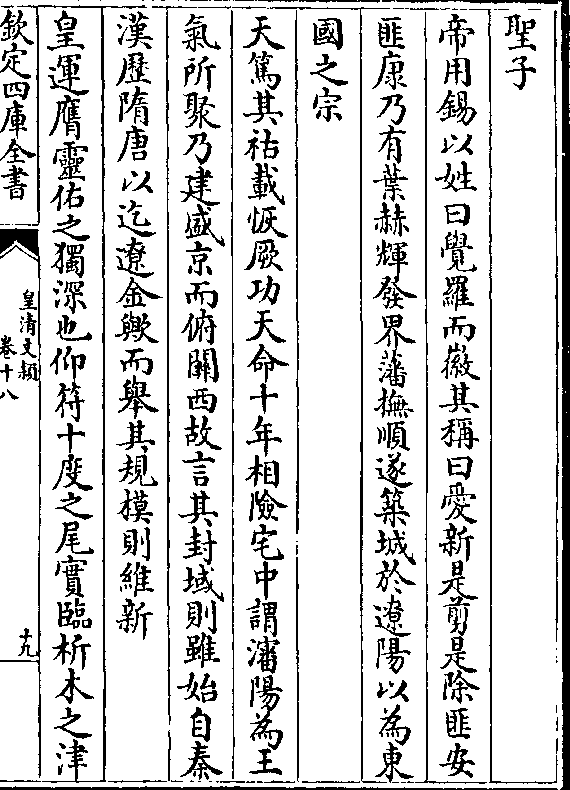 聖子
帝用錫以姓曰覺羅而徽其稱曰愛新是剪是除匪安
匪康乃有葉赫輝發界藩撫順遂築城於遼陽以為東
國之宗
天篤其祜載恢厥功天命十年相險宅中謂瀋陽為王
氣所聚乃建盛京而俯關西故言其封域則雖始自秦
漢歷隋唐以迄遼金歟而舉其規模則維新
皇運膺靈佑之獨深也仰符十度之尾實臨析木之津
欽定四庫全書
皇清文穎
卷十八
十九